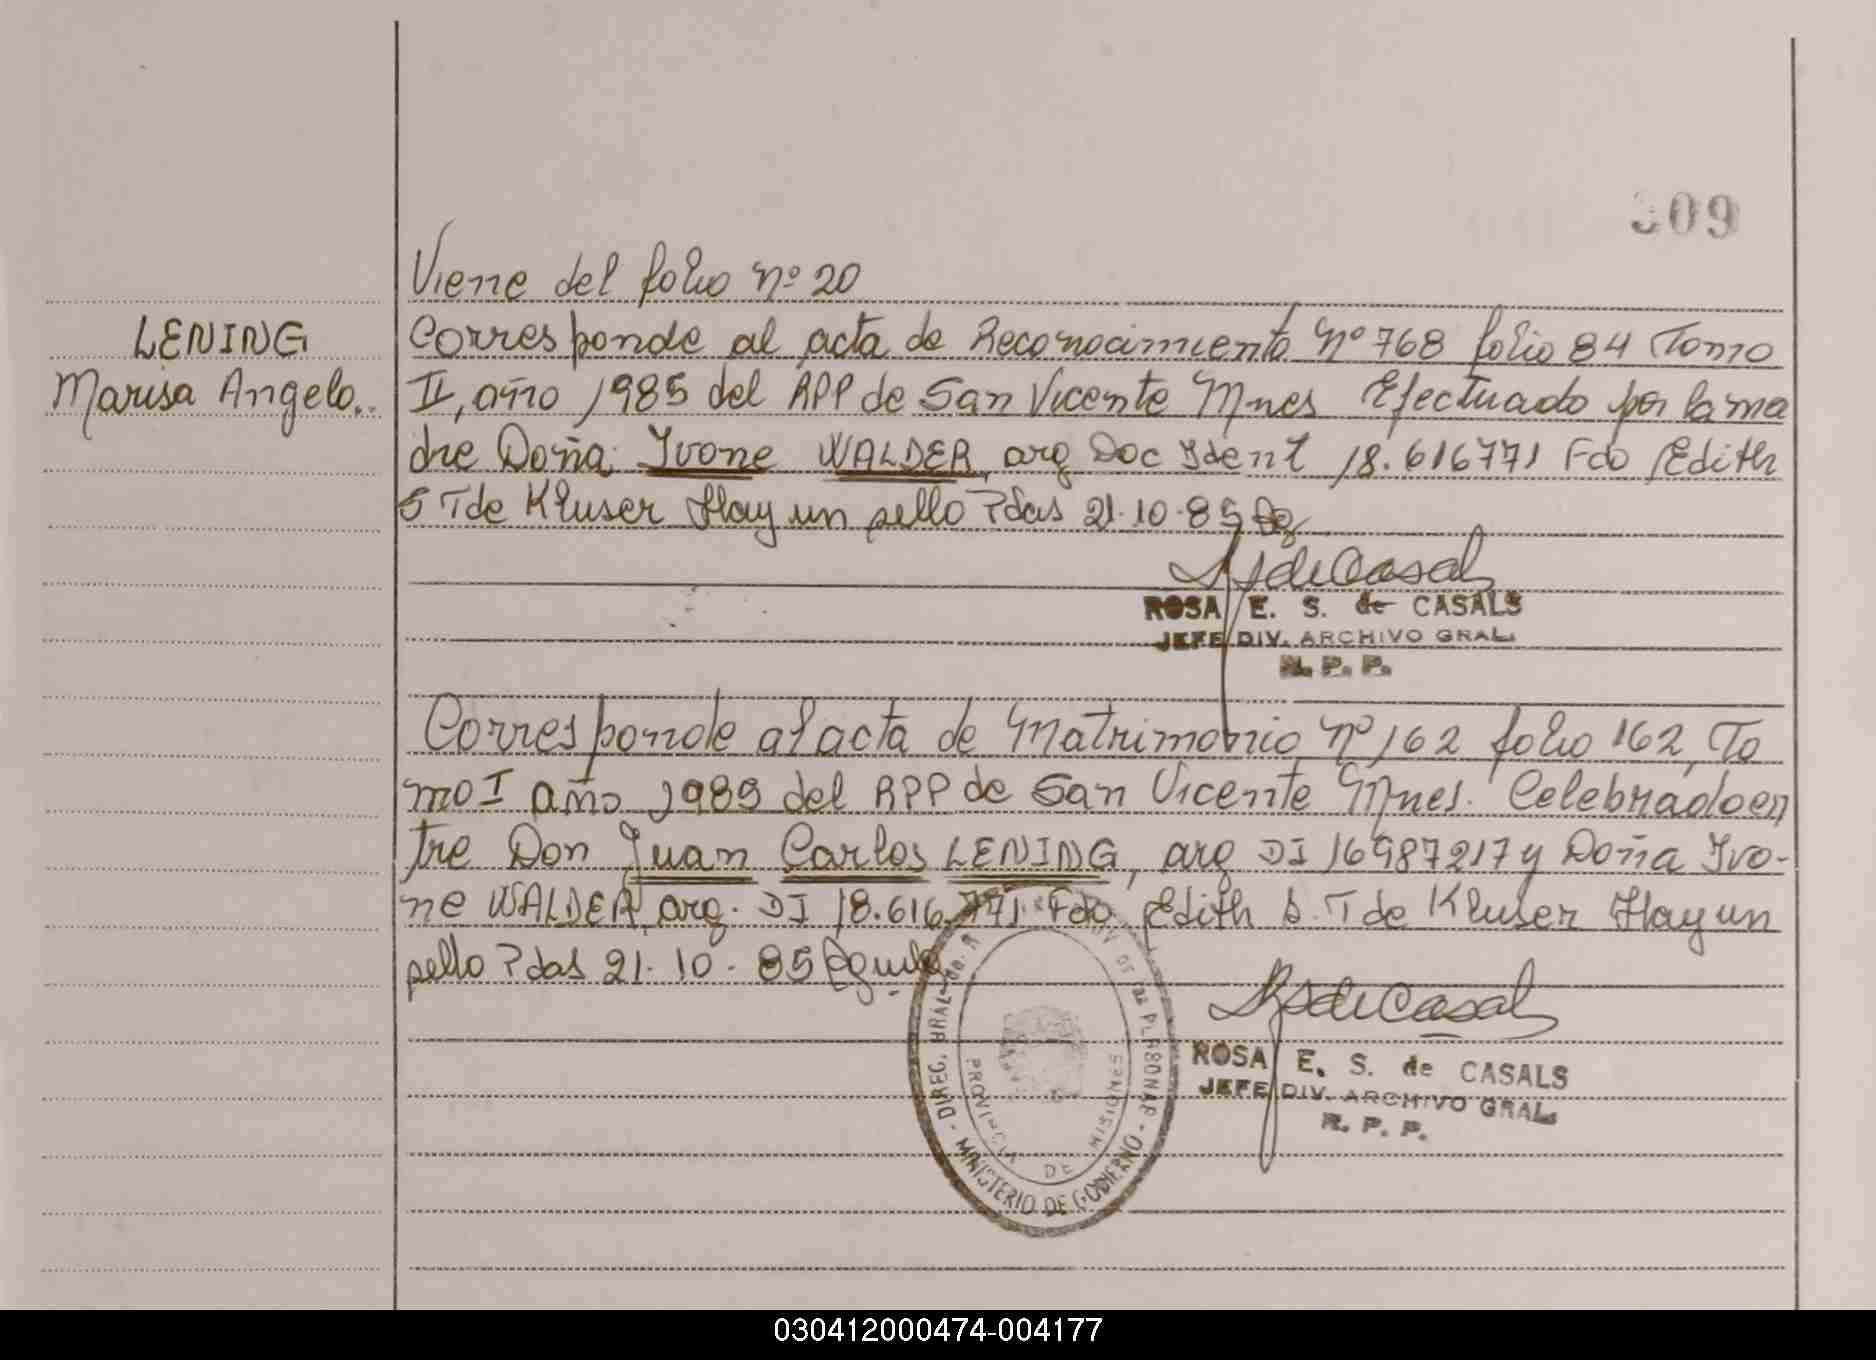 309
Viene del folio nº 20
LENING
Marisa Angela..
Corresponde al acta de Reconocimiento nº 768 folio 84 Tomo
II, año 1985 del RPP de San Vicente Mnes Efectuado por la ma
dre Doña Ivone WALDER, arg Doc Ident 18.616771 Fdo Edith
S T de Kluser Hay un sello Pdas 21.10.85
ROSA E. S. de CASALS
JEFE DIV. ARCHIVO GRAL.
R. P. P.
Corresponde al acta de Matrimonio nº 162 folio 162, To
mo I año 1985 del RPP de San Vicente Mnes. Celebrado en
tre Don Juan Carlos LENING, arg DI 16987217 y Doña Ivo-
ne WALDER, arg. DI 18.616.771. Fdo Edith S. T de Kluser Hay un
sello Pdas 21.10.85
ROSA E. S. de CASALS
JEFE DIV. ARCHIVO GRAL.
R. P. P.
DIREC. GRAL.
MINISTERIO DE GOBIERNO
PROVINCIA DE MISIONES
030412000474-004177